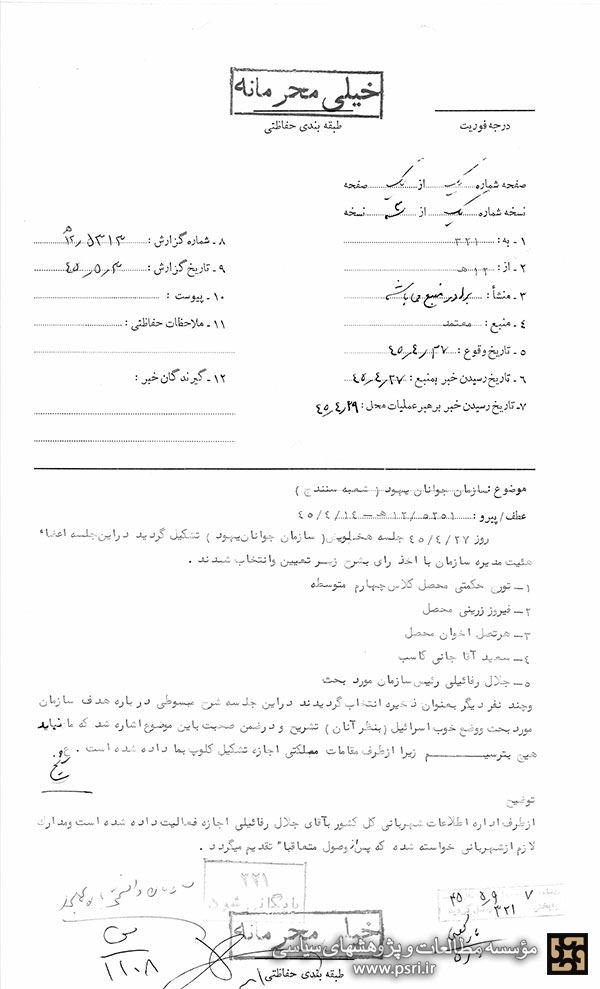 خیلی محرمانه
طبقه بندی حفاظتی
درجه فوریت
صفحه شماره یک از یک صفحه
نسخه شماره یک از سه نسخه
۱ـ به : ۳۲۱
۲ـ از : ۱۲ هـ
۳ـ منشأ : برادر منبع می باشد
۴ـ منبع : معتمد
۵ـ تاریخ وقوع : ۴۵٫۴٫۲۷
۶ـ تاریخ رسیدن خبر بمنبع : ۴۵٫۴٫۲۷
۷ـ تاریخ رسیدن خبر برهبر عملیات محل : ۴۵٫۴٫۲۹
۸ـ شماره گزارش :
۹ـ تاریخ گزارش : ۴۵٫۵٫۳
۱۰ـ پیوست :
۱۱ـ ملاحظات حفاظتی :
۱۲ـ گیرندگان خبر :
موضوع : سازمان جوانان یهود ( شعبه سنندج )
عطف/پیرو : ۵۲۵۱/۱۲هـ – ۴۵/۴/۱۴
روز ۴۵/۴/۲۷ جلسه ( سازمان جوانان یهود ) تشکیل گردید در این جلسه اعضاء
هئیت مدیره سازمان با اخذ رای بشرح زیر تعیین وانتخاب شدند .
۱ـ توری حکمتی محصل کلاس چهارم متوسطه
۲ـ فیروز زرینی محصل
۳ـ هرتصل اخوان محصل
۴ـ سعید آقا جانی کاسب
۵ـ جلال رفائیلی رئیس سازمان مورد بحث
وچند نفر دیگر بعنوان ذخیره انتخاب گردیدند در این جلسه شرح مبسوطی در باره هدف سازمان
مورد بحث ووضع خوب اسرائیل (بنظر آنان ) تشریح و در ضمن صحبت باین موضوع اشاره شد که ما نباید
هیچ بترسیم زیرا از طرف مقامات مملکتی اجازه تشکیل کلوپ بما داده شده است . ع
توضیح
از طرف اداره اطلاعات شهربانی کل کشور بآقای جلال رفائیلی اجازه فعالیت داده شده است ومدارک
لازم از شهربانی خواسته شده که پس از وصول متعاقباً تقدیم میگردد .
۳۲۱
بایگانی شود
۳۲۱
۱۱۰۸
خیلی محرمانه
طبقه بندی حفاظتی
مؤسسه مطالعات و پژوهشهای سیاسی
www.psri.ir